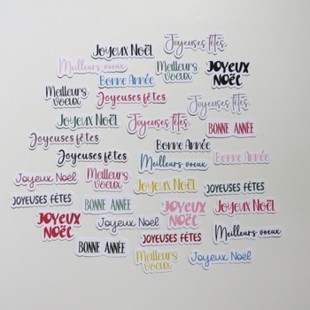 Joyeux Noël
Joyeuses fêtes
Meilleurs voeux
Meilleurs
voeux
JOYEUX
NOËL
Bonne Année
Meilleurs
voeux
Joyeuses fêtes
Joyeuses fêtes
Joyeux Noël
Joyeuses fêtes
BONNE ANNÉE
Joyeuses fêtes
Bonne Année
Joyeuses fêtes
Meilleurs voeux
Bonne Année
Joyeux Noël
Meilleurs
voeux
Joyeux Noël
JOYEUSES FÊTES
JOYEUSES FÊTES
BONNE ANNÉE
JOYEUX
NOËL
Joyeux Noël
JOYEUX
NOËL
Joyeux Noël
BONNE ANNÉE
JOYEUSES FÊTES
Meilleurs voeux
Meilleurs
voeux
Joyeux Noël